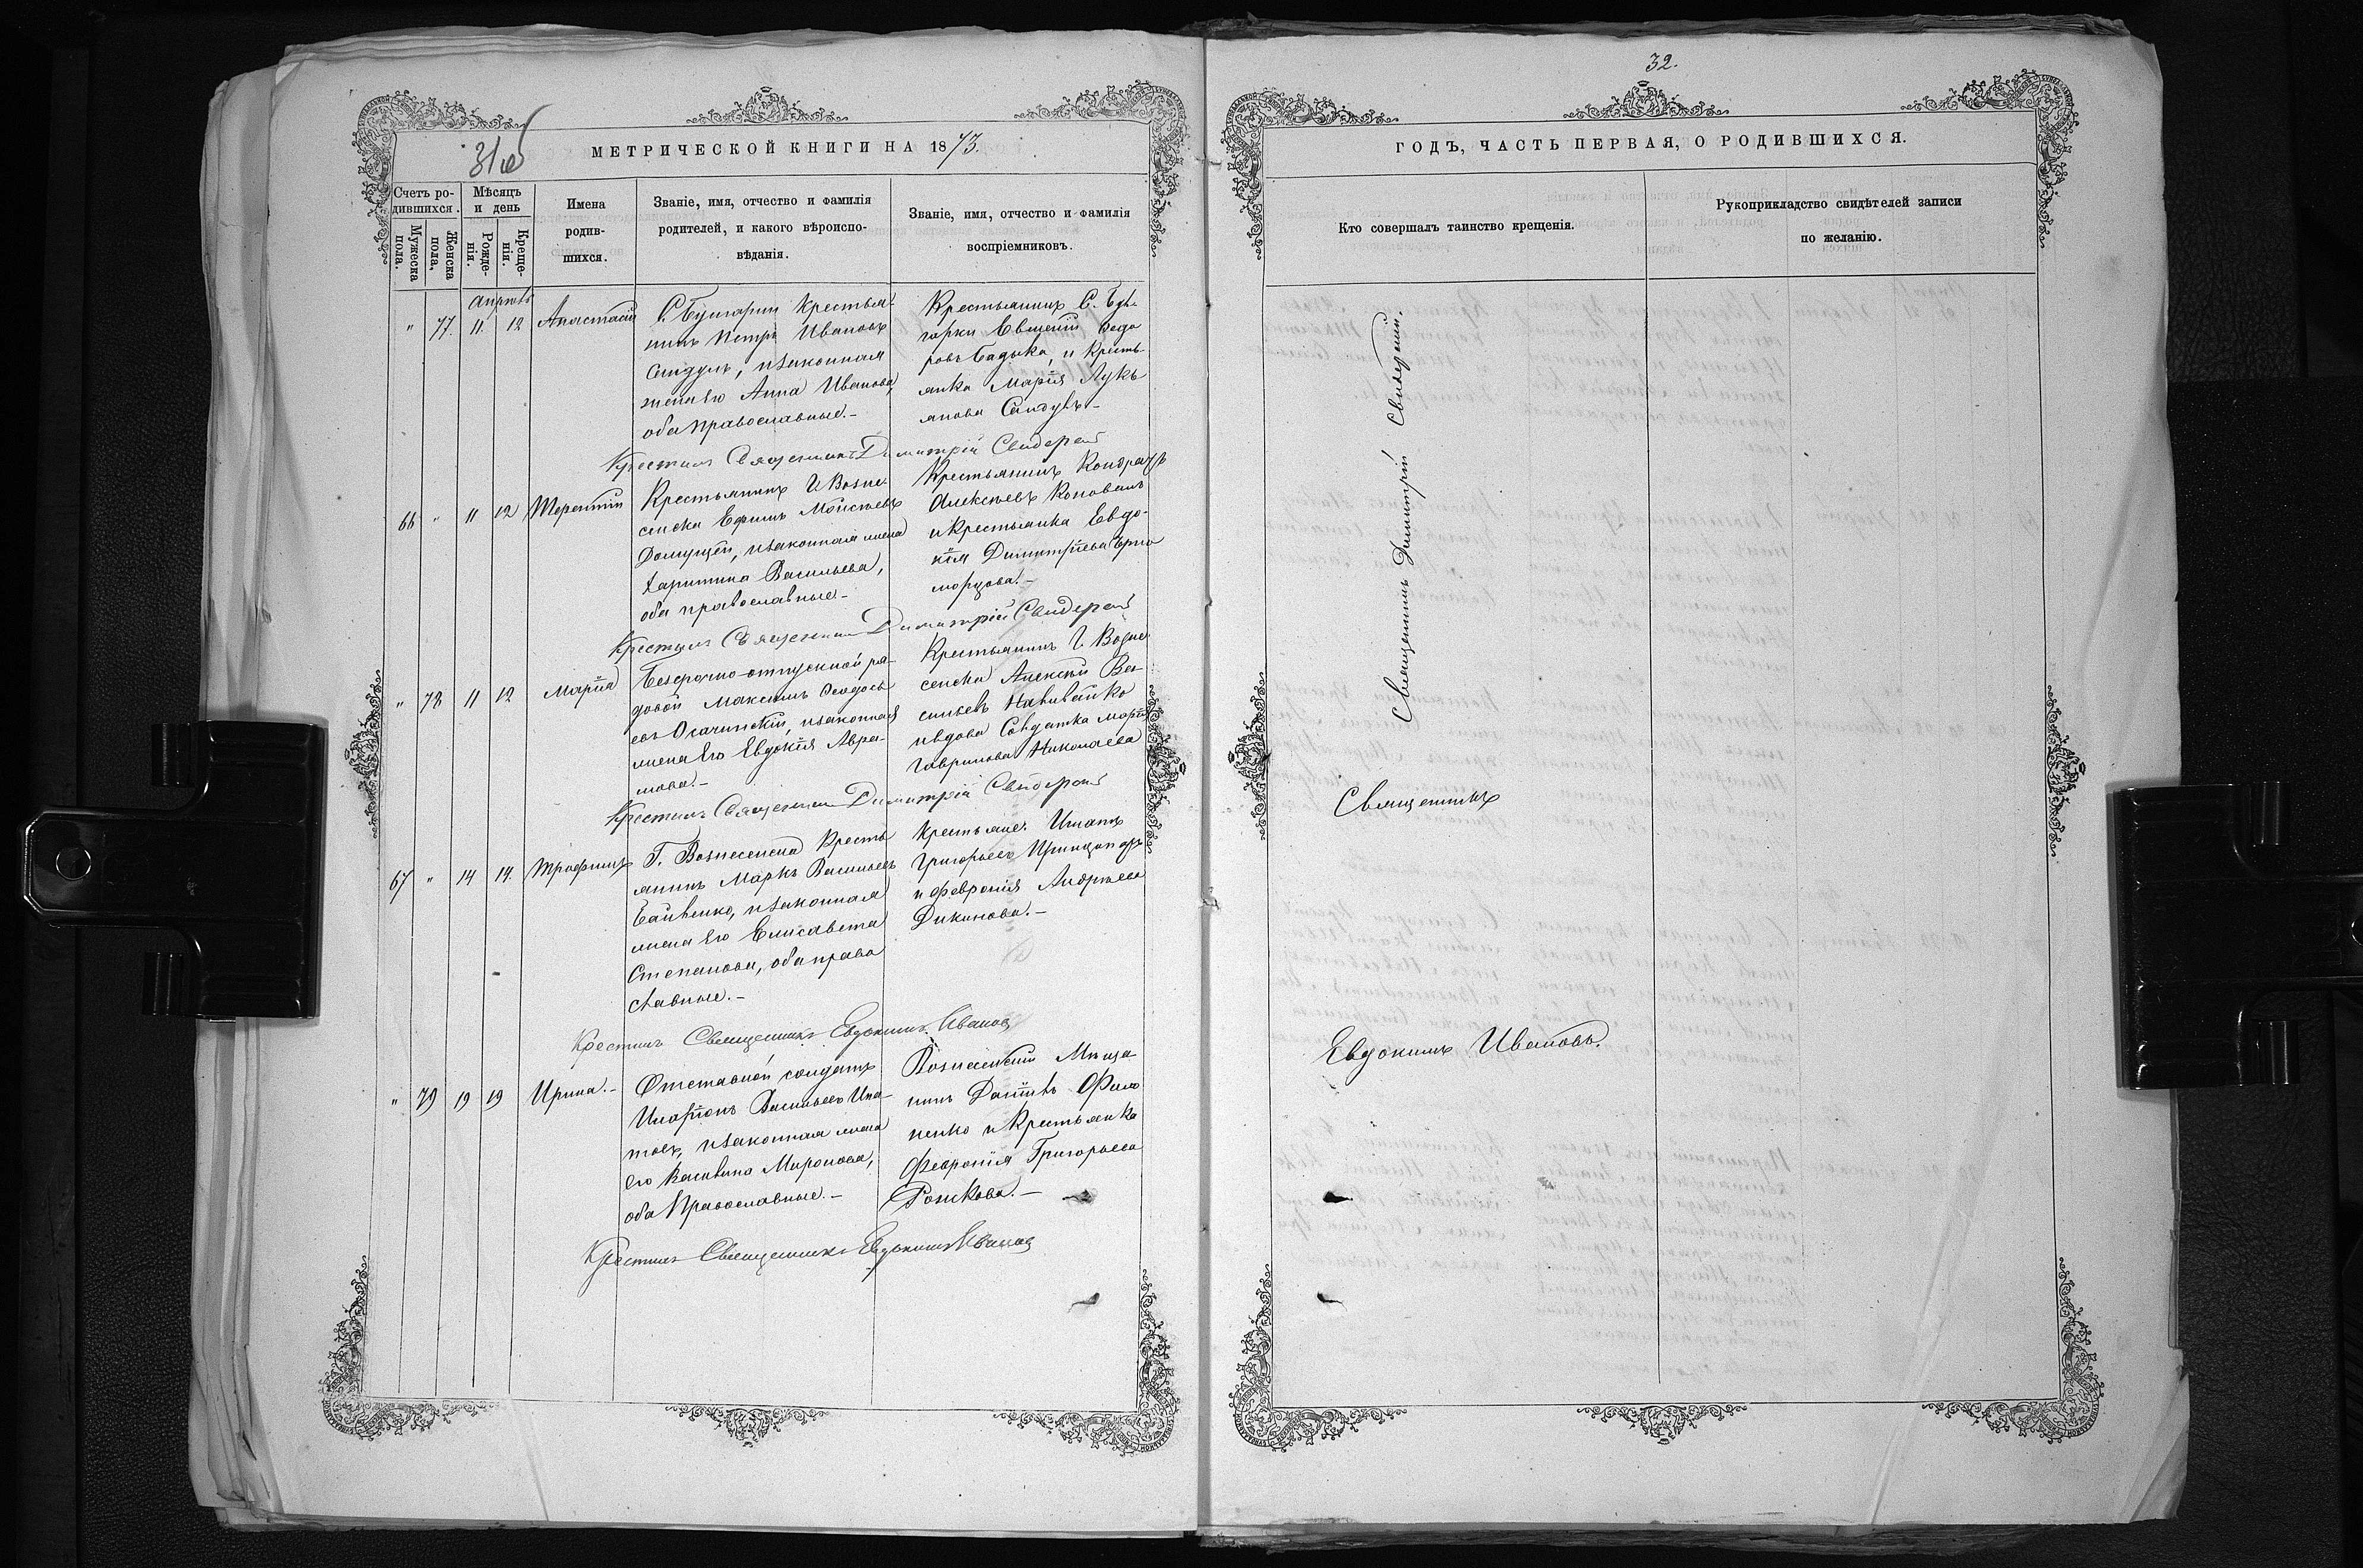 32.
МЕТРИЧЕСКОЙ КНИГИ НА 1873.
Счетъ ро-
дившихся.
Мужеска
пола.
Женска
пола.
Мѣсяцъ
и день
Рожде-
нія.
Креще-
нія.
Имена
родив-
шихся.
Званіе, имя, отчество и фамилія
родителей, и какого вѣроиспо-
вѣданія.
Званіе, имя, отчество и фамилія
воспріемниковъ.
Апрель
" 77. 11 12 Анастасія
С. Булгарки Крестья-
нинъ Петръ Ивановъ
Сандулъ, и законная
жена его Анна Иванова,
оба православные.-
Крестьянинъ С. Бул-
гарки Евгеній Ѳедо
ровъ Бадыка, и кресть-
янка Марія Лукь
янова Сандулъ-
Крестилъ Священникъ Димитрій Свидерскій
66 " 11 12 Терентій
Крестьянинъ г. Возне-
сенска Ефимъ Моисеевъ
, и законная жена
Харитина Васильева,
оба православные-
Крестьянинъ Кондратъ
Алексѣевъ Коновалъ
и крестьянка Евдо-
кія Димитріева Чрно
морцова.-
Крестилъ Священникъ Димитрій Свидерскій
" 78 11 12 Марія
Безсрочно-отпускной ря-
довой Максимъ Ѳеодось
евъ Осачинскій, и законная
жена его Евдокія Авра-
мова.-
Крестьянинъ г. Возне-
сенска Алексѣй Ва-
сильевъ Наливайко
и вдова Солдатка Марія
Гаврилова Николаева
Крестилъ Священникъ Димитрій Свидерскій
67 " 14 14. Трофимъ
Г. Вознесенска Кресть
янинъ Маркъ Васильевъ
, и законная
жена его Елисавета
Степанова, оба право
славные.-
Крестьяне. Игнатъ
Григорьевъ
и Февронія Андреева
Диканова.-
Крестилъ Священникъ Евдокимъ Ивановъ
" 79 19 19 Ирина.-
Отставной солдатъ
Иларіонъ Васильевъ Игна-
товъ, и законная жена
его Миронова,
оба Православные.-
Вознесенскій Мѣща
нинъ Даніилъ Фило
ненко и крестьянка
Февронія Григорьева
Рошкова.-
Крестилъ Священникъ Евдокимъ Ивановъ
ГОДЪ, ЧАСТЬ ПЕРВАЯ, О РОДИВШИХСЯ.
Кто совершалъ таинство крещенія.
Рукоприкладство свидѣтелей записи
по желанію.
Священникъ Димитрій Свидерскій.
Священникъ
Евдокимъ Ивановъ.